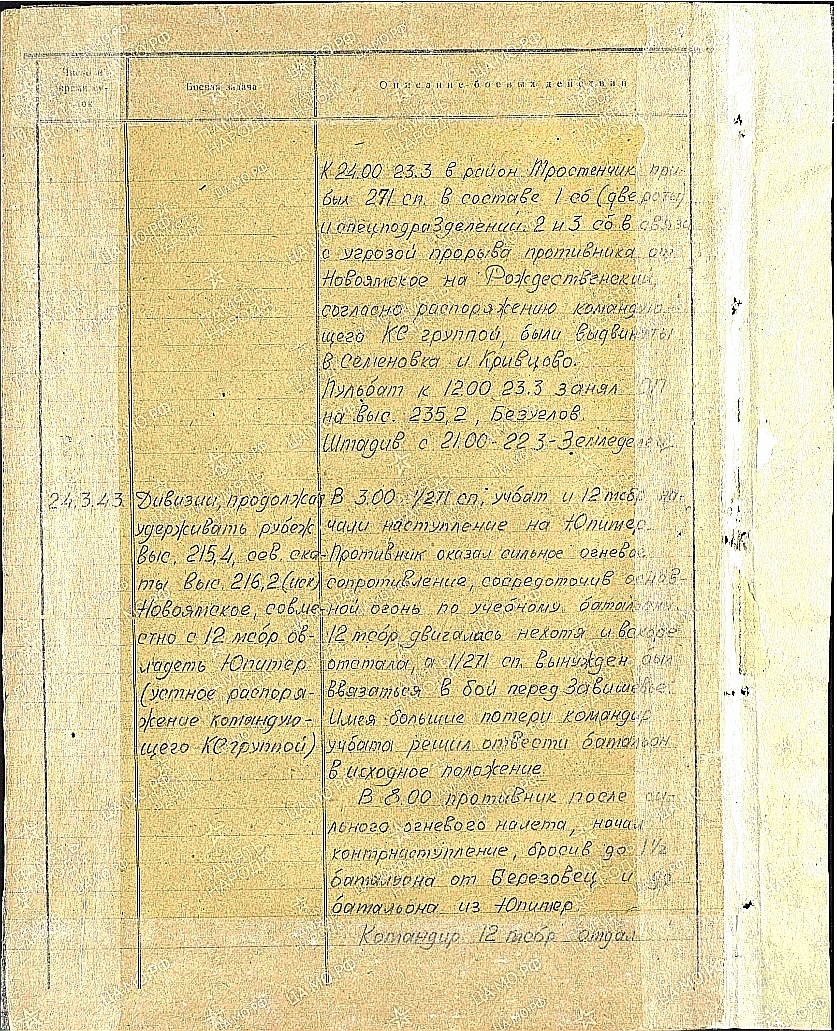 Число и время су-ток
Боевая задача
Описание боевых действий
К 24.00 23.3 в район Тростенчик при-
был 271 сп. в составе 1 сб (две роты)
и спецподразделений. 2 и 3 сб в связи
с угрозой прорыва противника от
Новоямское на Рождественский,
согласно распоряжению командую-
щего КС группой, были выдвинуты
в Семеновка и Кривцово.
Пульбат к 12.00 23.3 занял ОП
на выс. 235,2, Безуглов.
Штадив с 21.00-22.3-Земледелец.
24.3.43.
Дивизии, продолжая
удерживать рубеж
выс. 215,4, сев. ска-
ты выс. 216,2 (иск)
Новоямское, совме-
стно с 12 тсбр ов-
ладеть Юпитер
(устное распоря-
жение командую-
щего КС группой)
В 3.00 1/271 сп, учбат и 12 тсбр на-
чали наступление на Юпитер.
Противник оказал сильное огневое
сопротивление, сосредоточив основ-
ной огонь по учебному батальону.
12 тсбр двигалась нехотя и вскоре
отстала, а 1/271 сп вынужден был
ввязаться в бой перед Завишенье.
Имея большие потери командир
учбата решил отвести батальон
в исходное положение.
В 8.00 противник после си-
льного огневого налета, начал
контрнаступление, бросив до 1½
батальона от Березовец и до
батальона из Юпитер.
Командир 12 тсбр отдал